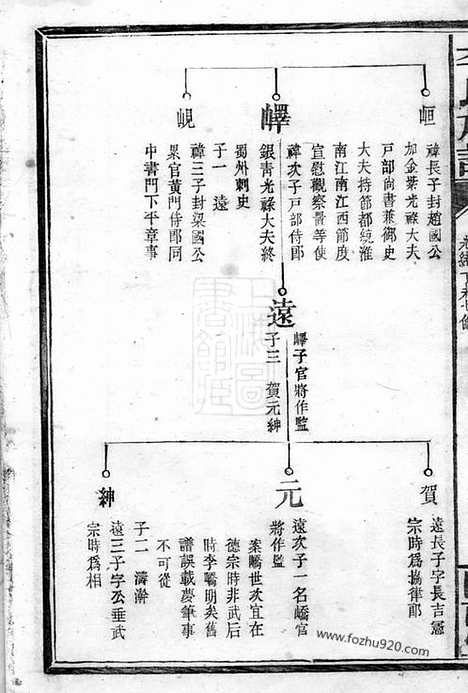 峘
禕長子封趙國公
加金紫光祿大夫
戸部尚書兼御史
大夫持節都統淮
南江南江西節度
宣慰觀察等使
嶧
禕次子戸部侍郎
銀青光祿大夫終
蜀州刺史
子一 遠
峴
禕三子封梁國公
累官黃門侍郎同
中書門下平章事
遠
嶧子官將作監
子三 賀元紳
賀
遠長子字長吉憲
宗時爲協律郎
元
遠次子一名嶠官
將作監
案嶠世次宜在
德宗時非武后
時李嶠明矣舊
譜誤載夢筆事
不可從
子二 濤瀚
紳
遠三子字公垂武
宗時爲相
www.fozhu920.com